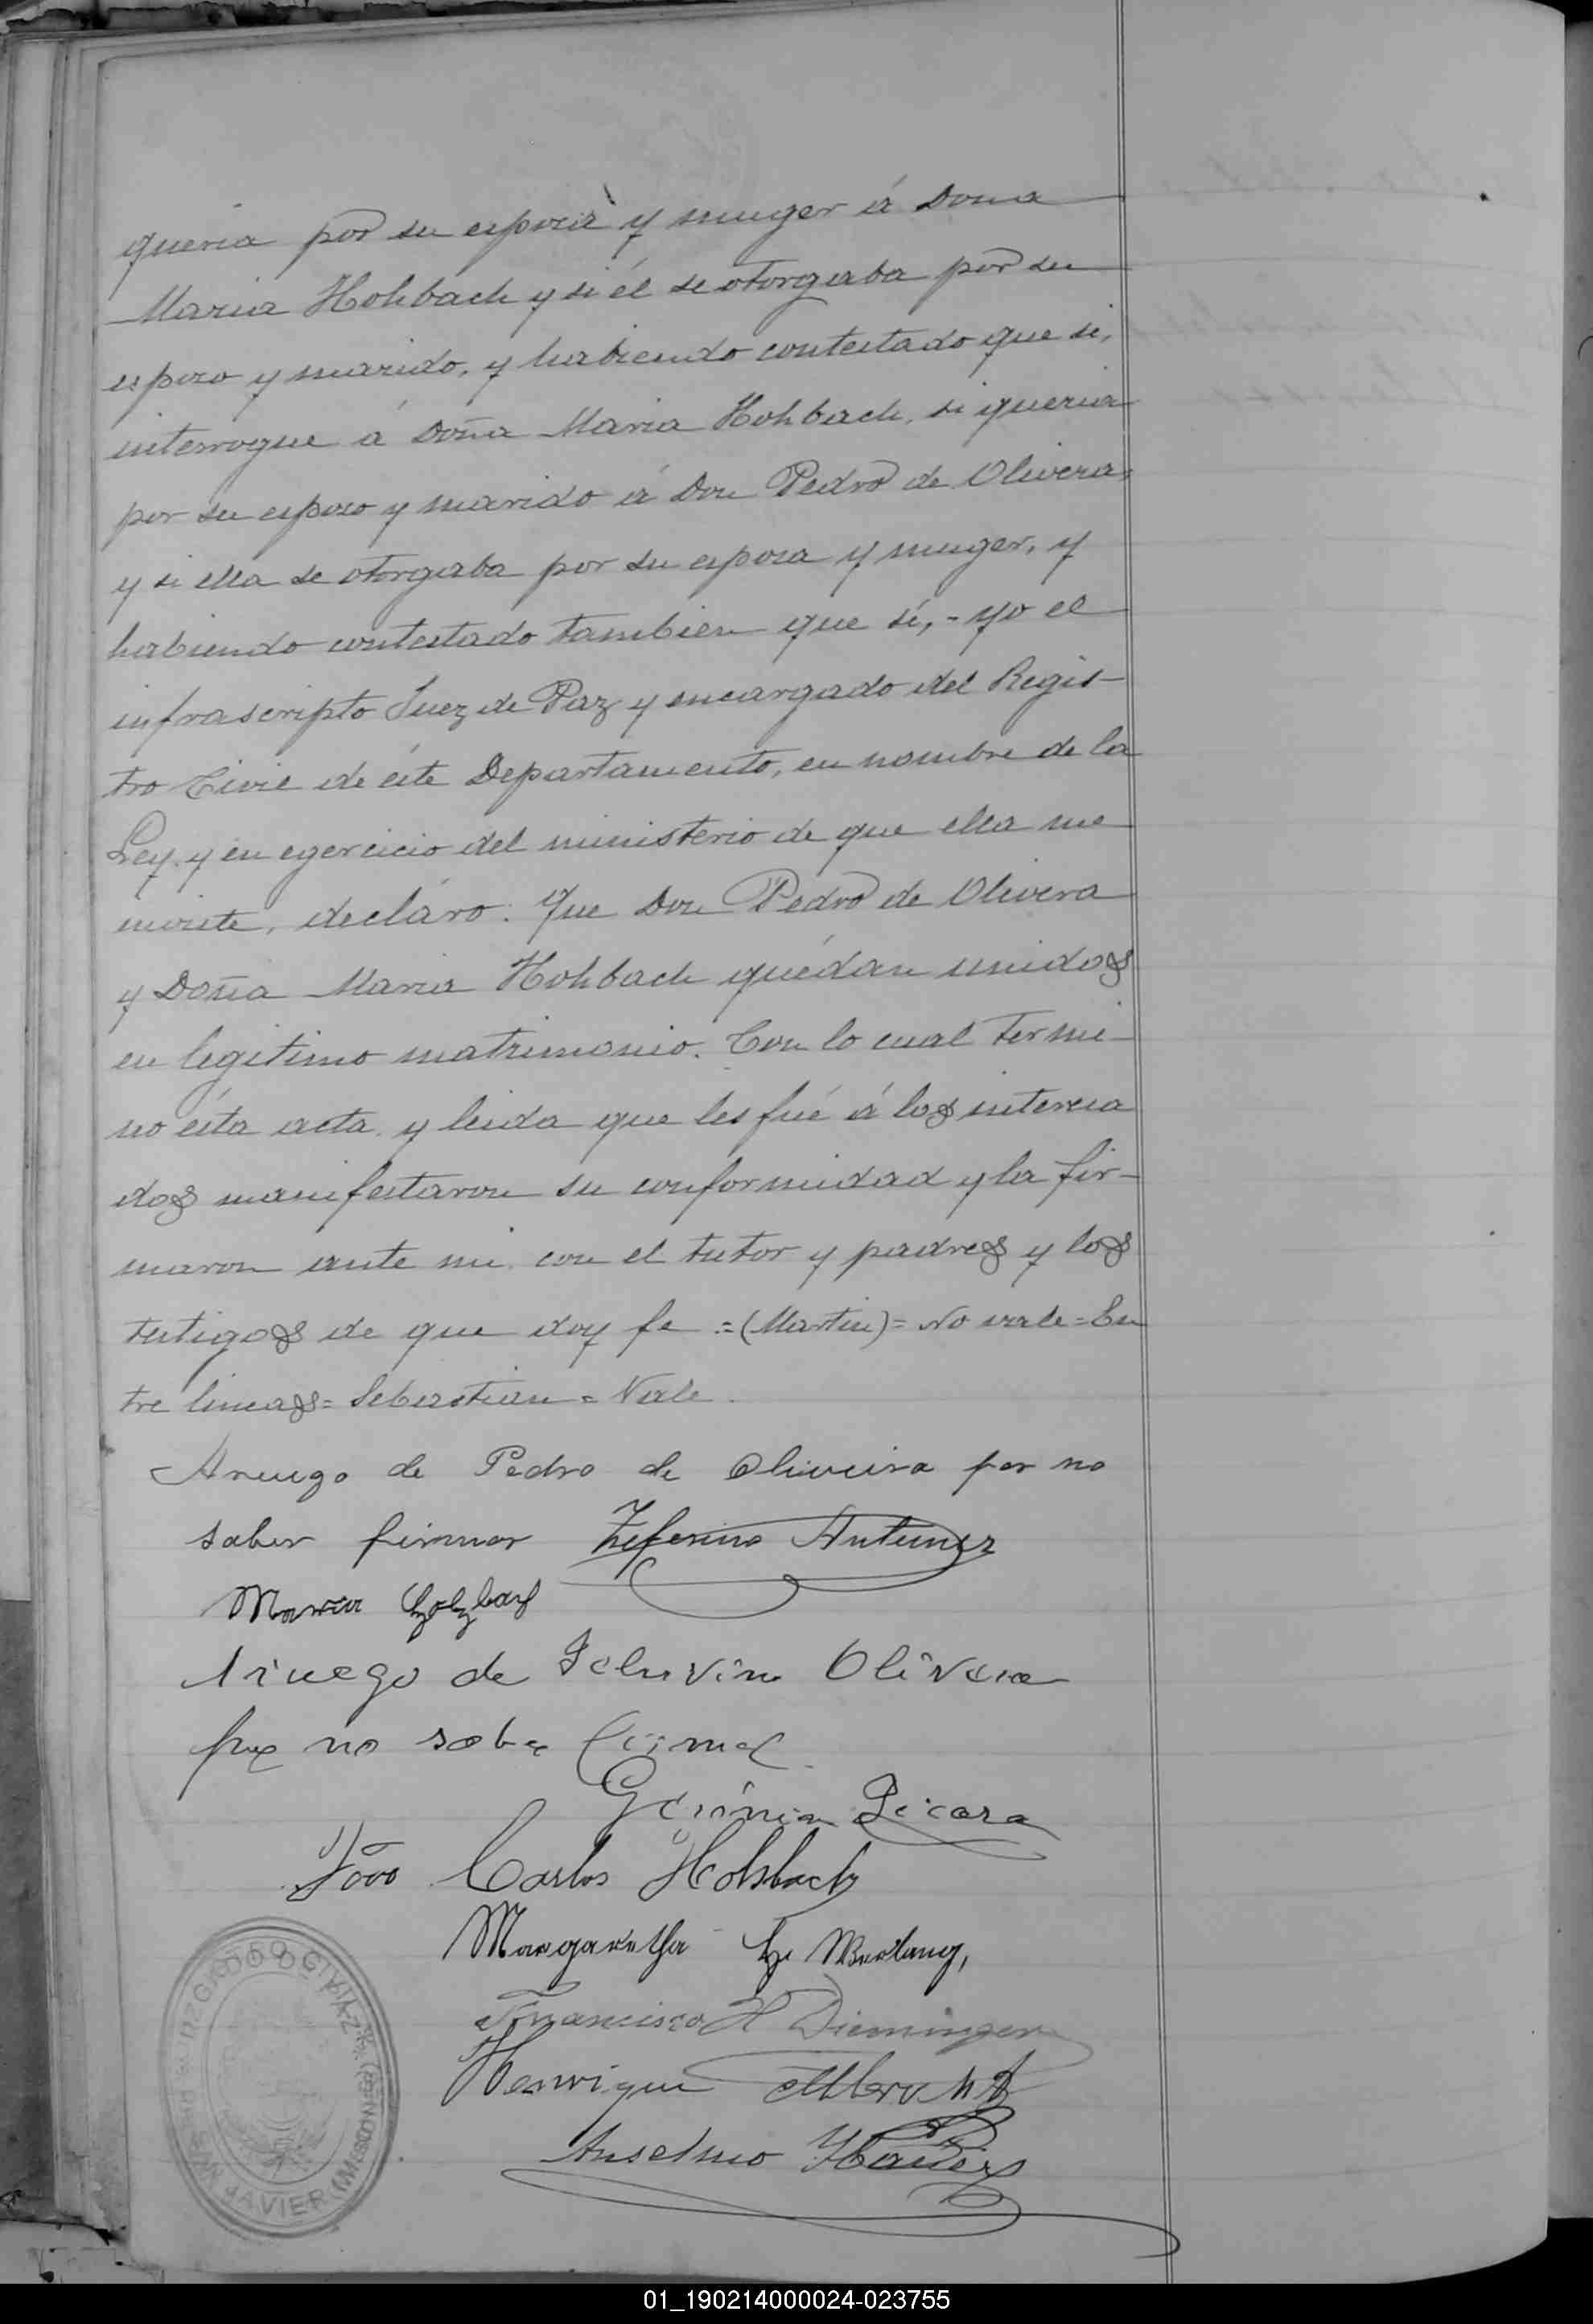 queria por su esposa y muger á Dona
Maria Hohbach y si él se otorgaba por su
esposo y marido, y habiendo contestado que si,
interrogue á Doña Maria Hohbach, si queria
por su esposo y marido á Don Pedro de Olivera,
y si ella se otorgaba por su esposa y muger, y
habiendo contestado tambien que sí,- yo el
infrascripto Juez de Paz y encargado del Regis-
tro Civil de éste Departamento, en nombre de la
Ley. y en egercicio del ministerio de que ella me
inviste, decláro: Que Don Pedro de Olivera
y Doña Maria Hohbach quédan unidos
en legitimo matrimonio. Con lo cual termi-
no ésta acta. y leida que les fué á los interesa
dos manifestaron su conformidad y la fir-
maron ante mi con el tutor y padres y los
testigos de que doy fe.=(Martin)=No vale=En
tre lineas=Sebastian=Vale.
Aruego de Pedro de Oliveira por no
saber firmar Zeferino Antunez
Maria Holzbach
Aruego de Olivera
por no saber firmar
Licara
Carlos Hohbach
Margaretha
Francisco H Dieminger
Henrique
Anselmo
JUZGADO DE PAZ
SAN JAVIER (MISIONES)
01_190214000024-023755